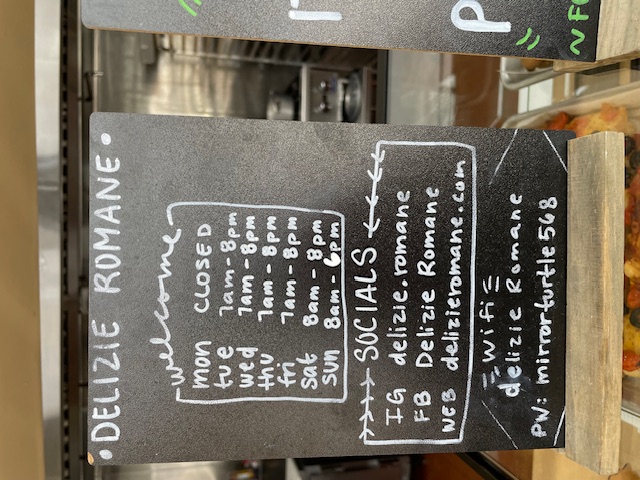 • DELIZIE ROMANE •
welcome
mon CLOSED
tue 7am - 8pm
wed 7am - 8pm
thu 7am - 8pm
fri 7am - 8pm
sat 8am - 8pm
sun 8am - 6pm
SOCIALS
IG delizie.romane
FB Delizie Romane
WEB delizieromane.com
wifi
delizie Romane
PW: mirrorturtle568